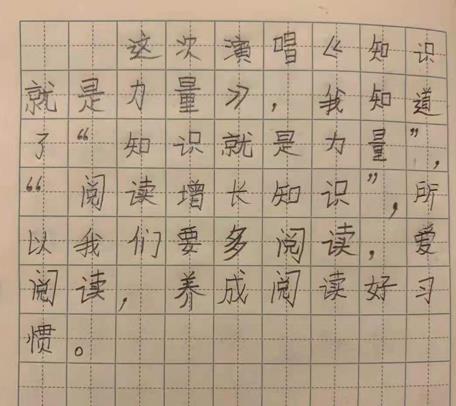 这次演唱《知识
就是力量》，我知道
了“知识就是力量”，
“阅读增长知识”，所
以我们要多阅读，爱
阅读，养成阅读好习
惯。